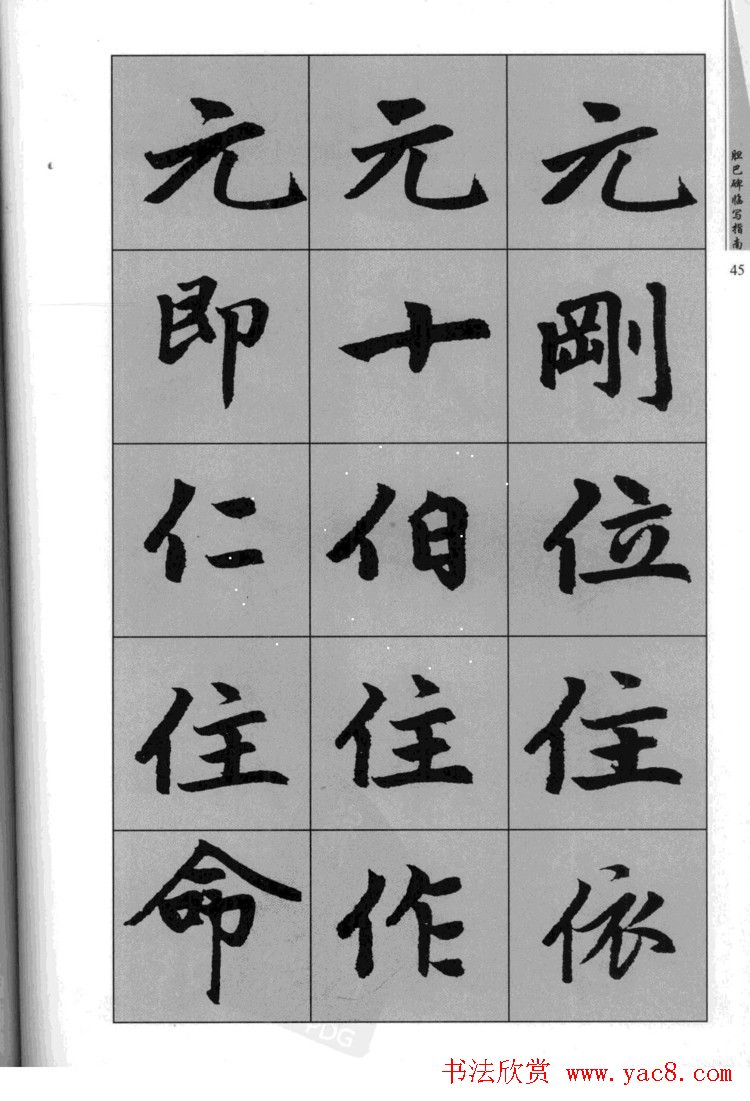 胆巴碑临写指南
45
元剛位住依
元十伯住作
元即仁住命
PDG
书法欣赏 www.yac8.com